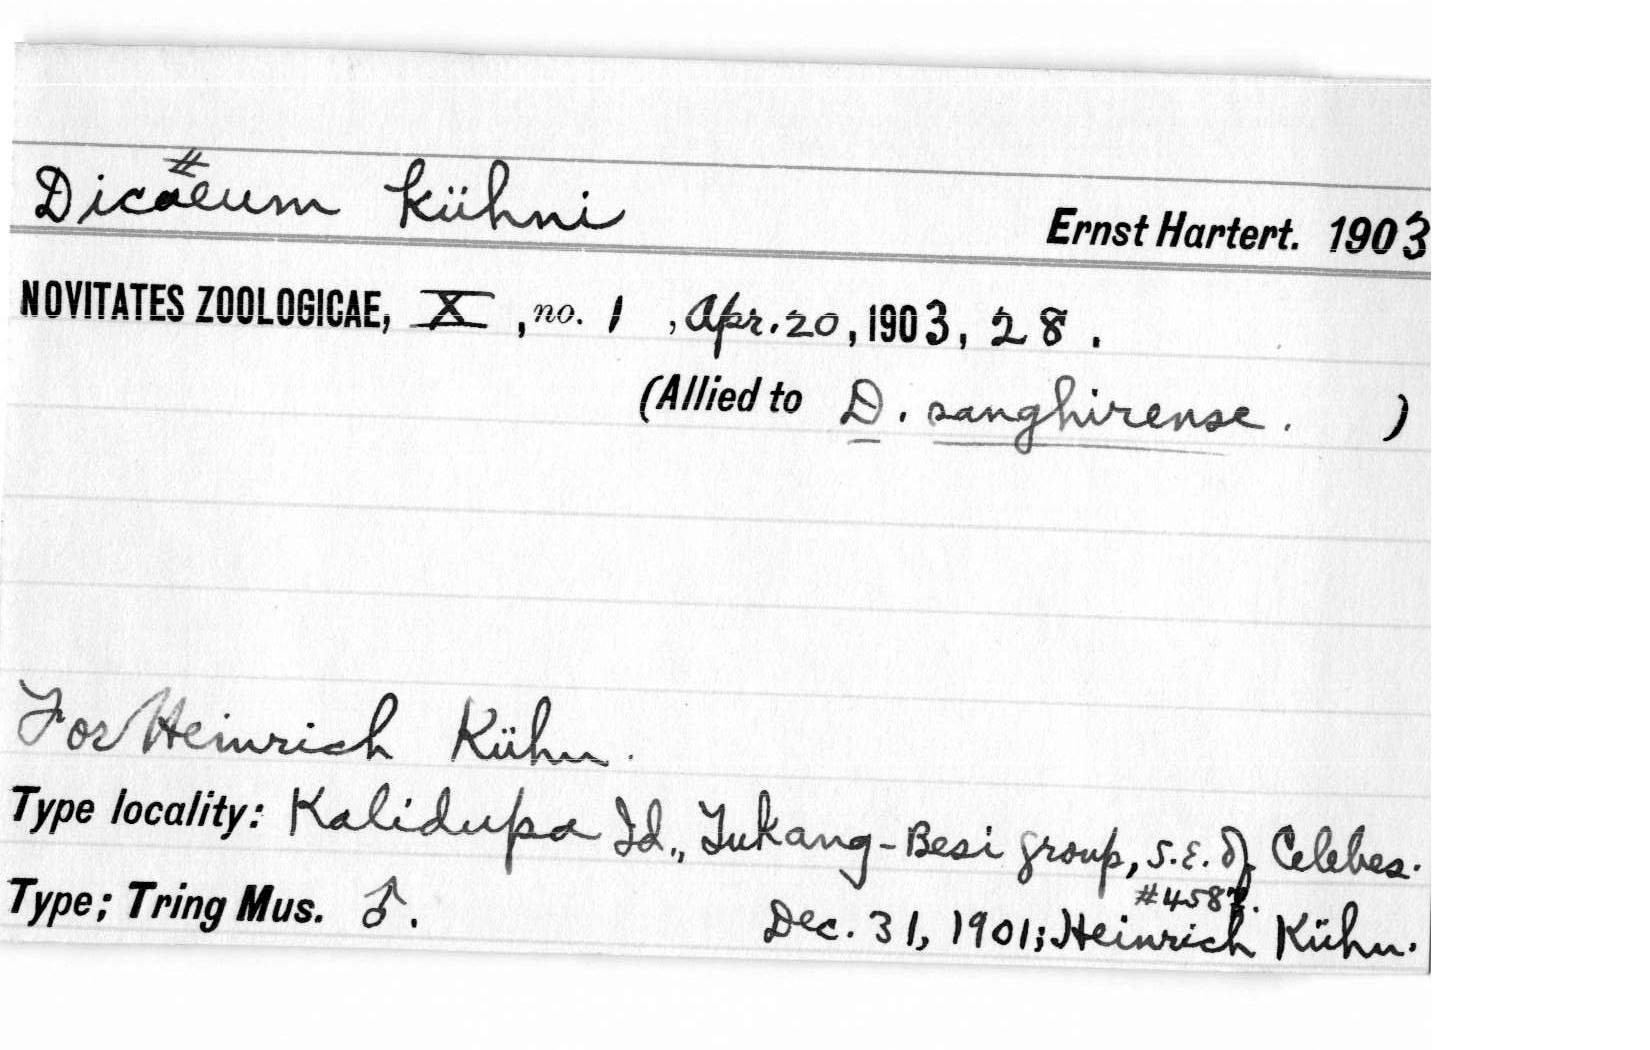 #
Dicaeum kühni
Ernst Hartert. 1903
NOVITATES ZOOLOGICAE, X, no. 1, Apr. 20, 1903, 28.
(Allied to D. sanghirense. )
For Heinrich Kühn.
Type locality: Kalidupa Id., Tukang-Besi group, S.E. of Celebes.
Type; Tring Mus. ♂.
#4587.
Dec. 31, 1901; Heinrich Kühn.